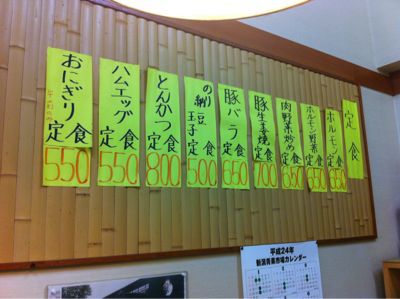 定食
ホルモン定食
ホルモン野菜定食
650
肉野菜炒め定食
650
豚生姜焼定食
700
豚バラ定食
650
のり
納豆
玉子
定食
500
とんかつ定食
800
ハムエッグ定食
550
おにぎり定食
550
平成24年
新潟青果市場カレンダー